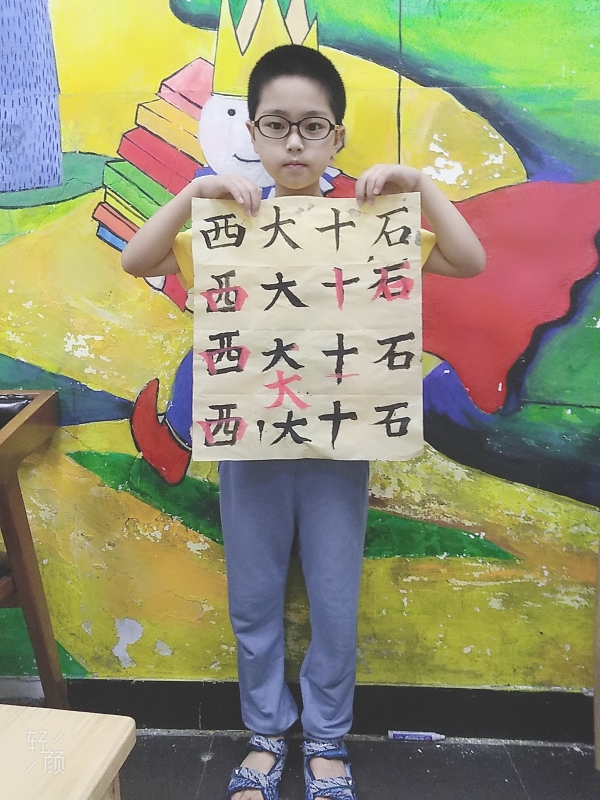 西大十石
西大十石
西大十石
大
西大十石
轻颜